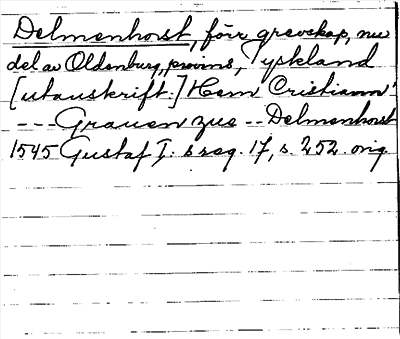 Delmenhorst, förr grevskap, nu
del av Oldenburg, provins, Tyskland
[utanskrift:] Hern Cristiann'
--- Grauen zue -- Delmenhorst
1545 Gustaf I:s reg. 17, s. 252. orig